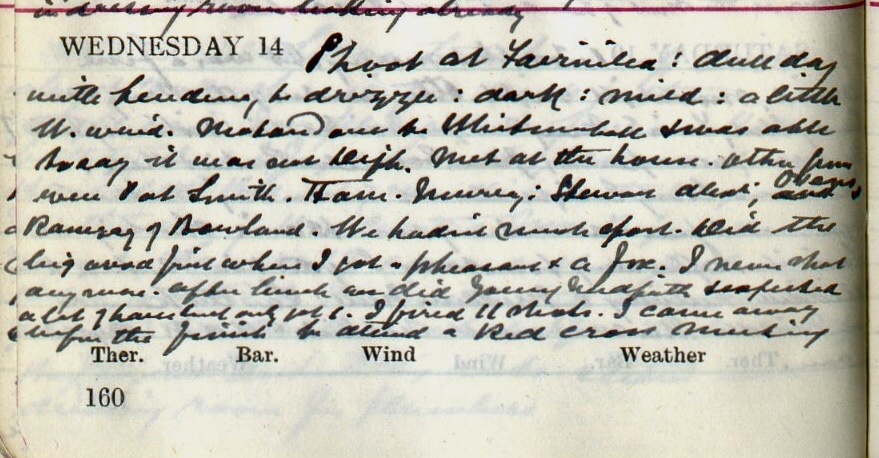 in dressing room looking already
WEDNESDAY 14 Shoot at Fairnilee: dull day
with tendency to drizzle: dark: mild: a little
W. wind. Motored over to & was able
to say it was not high. Met at the house. Other guns
were Pat Smith. Tham. Murray: Stewart also;
Ramsay of Bowland. We hadn't much sport. Did the
big wood first where I got a pheasant & a fox. I never shot
any more. After lunch we did expected
a lot of hares but only got 1. I fired 11 shots. I came away
before the finish to attend a Red Cross meeting
Ther. Bar. Wind Weather
160